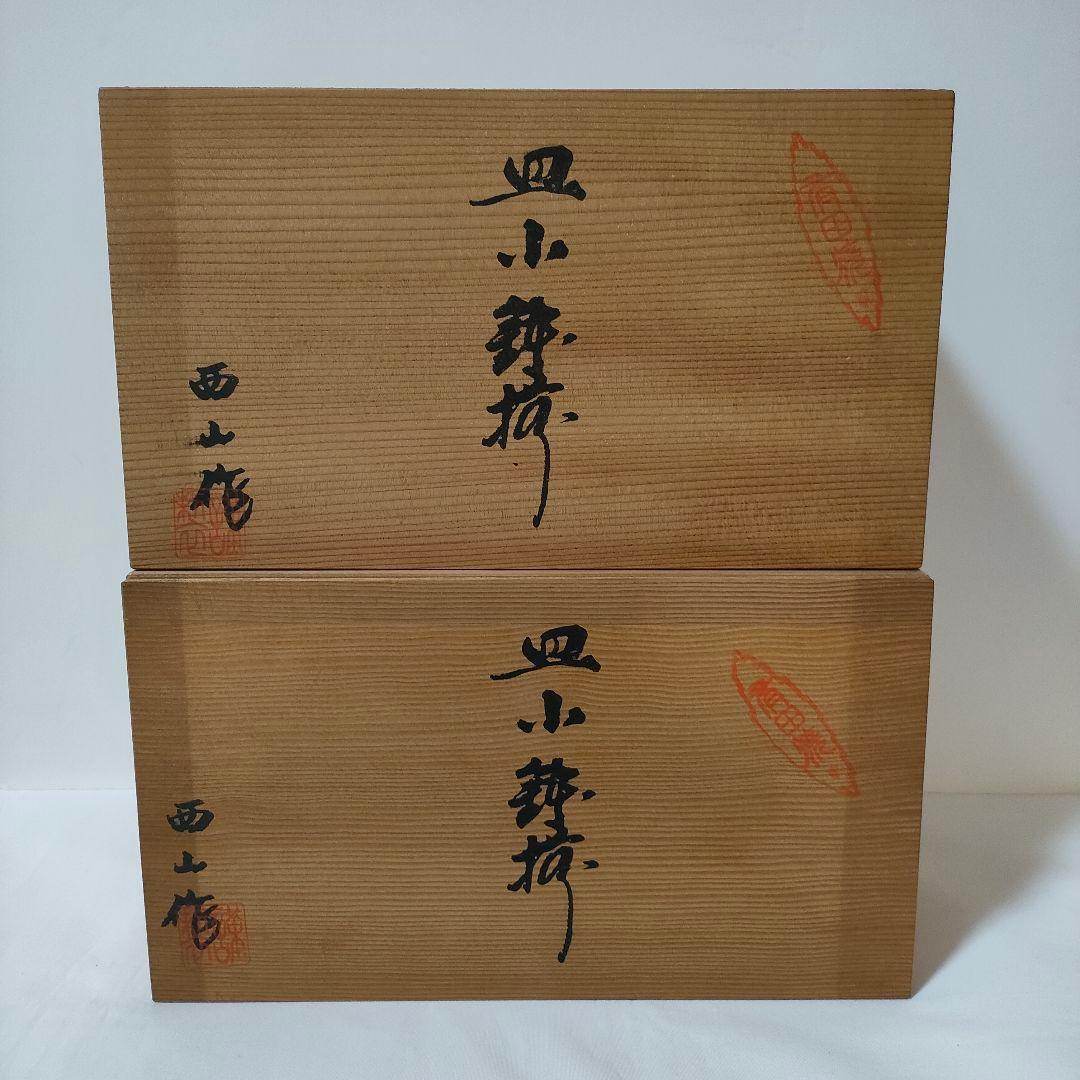 皿小鉢揃
有田焼
西山作
皿小鉢揃
有田焼
西山作